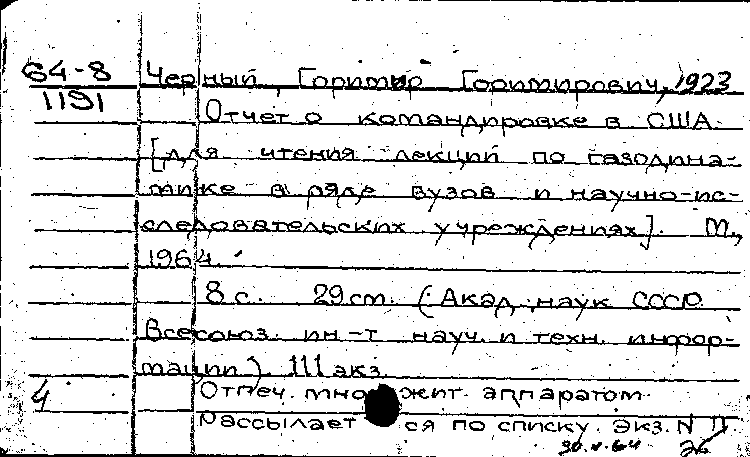 64-8 Черный, Горимир Горимирович, 1923
1191
Отчет о командировке в США
[для чтения лекций по газодина-
мике в ряде вузов и научно-ис-
следовательских учреждениях]. М.,
1964.
8 с. 29 cm. (Акад. наук СССР.
Всесоюз. ин-т науч. и техн. инфор-
мации). 111 экз.
4 Отпеч. множит. аппаратом.
Рассылается по списку. Экз. N
30.V.64 26